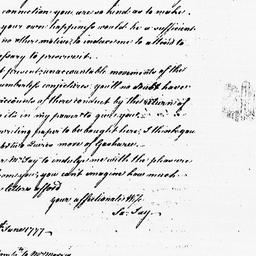 connection you are so kind as to make
your own happiness would be a sufficient
no other motive, to induce me to attend to
necessary to preserve it.
present, unaccountable movements of the
numberless conjectures; you'll no doubt have
accounts of there conduct by the return of
it is in my power to give you.
writing paper to be bought here; I think you
two or three Quires more of
Mr. Jay to indulge me with the pleasure
from you; you can't imagine how much
letters afford
your affectionate Wife
Sa. Jay.
June 1777